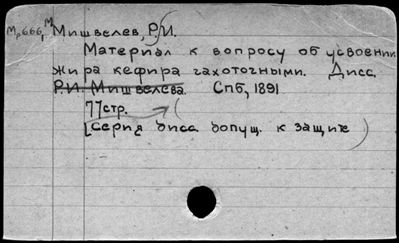 М,666, М Мишвелев, Р.И.
Материал к вопросу об усвоении
жира кефира чахоточными. Дисс.
Р.И. Мишвелева. Спб, 1891.
77стр. (
[серия дисс. допущ. к защите )